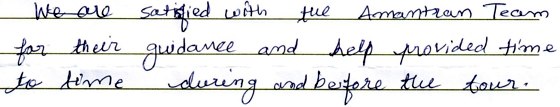 We are satisfied with the Amantran Team
for their guidance and help provided time
to time during and before the tour.